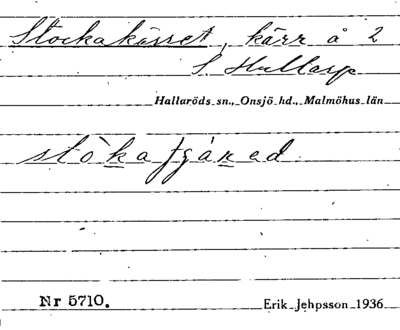 Stockakärret, kärr å 2
S. Hultarp
Hallaröds sn., Onsjö hd., Malmöhus län
Nr 5710.
Erik Jehpsson 1936